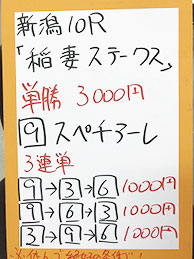 新潟10R
「稲妻ステークス」
単勝 3000円
9 スペチアーレ
3連単
9→3→6 1000円
9→6→3 1000円
3→9→6 1000円